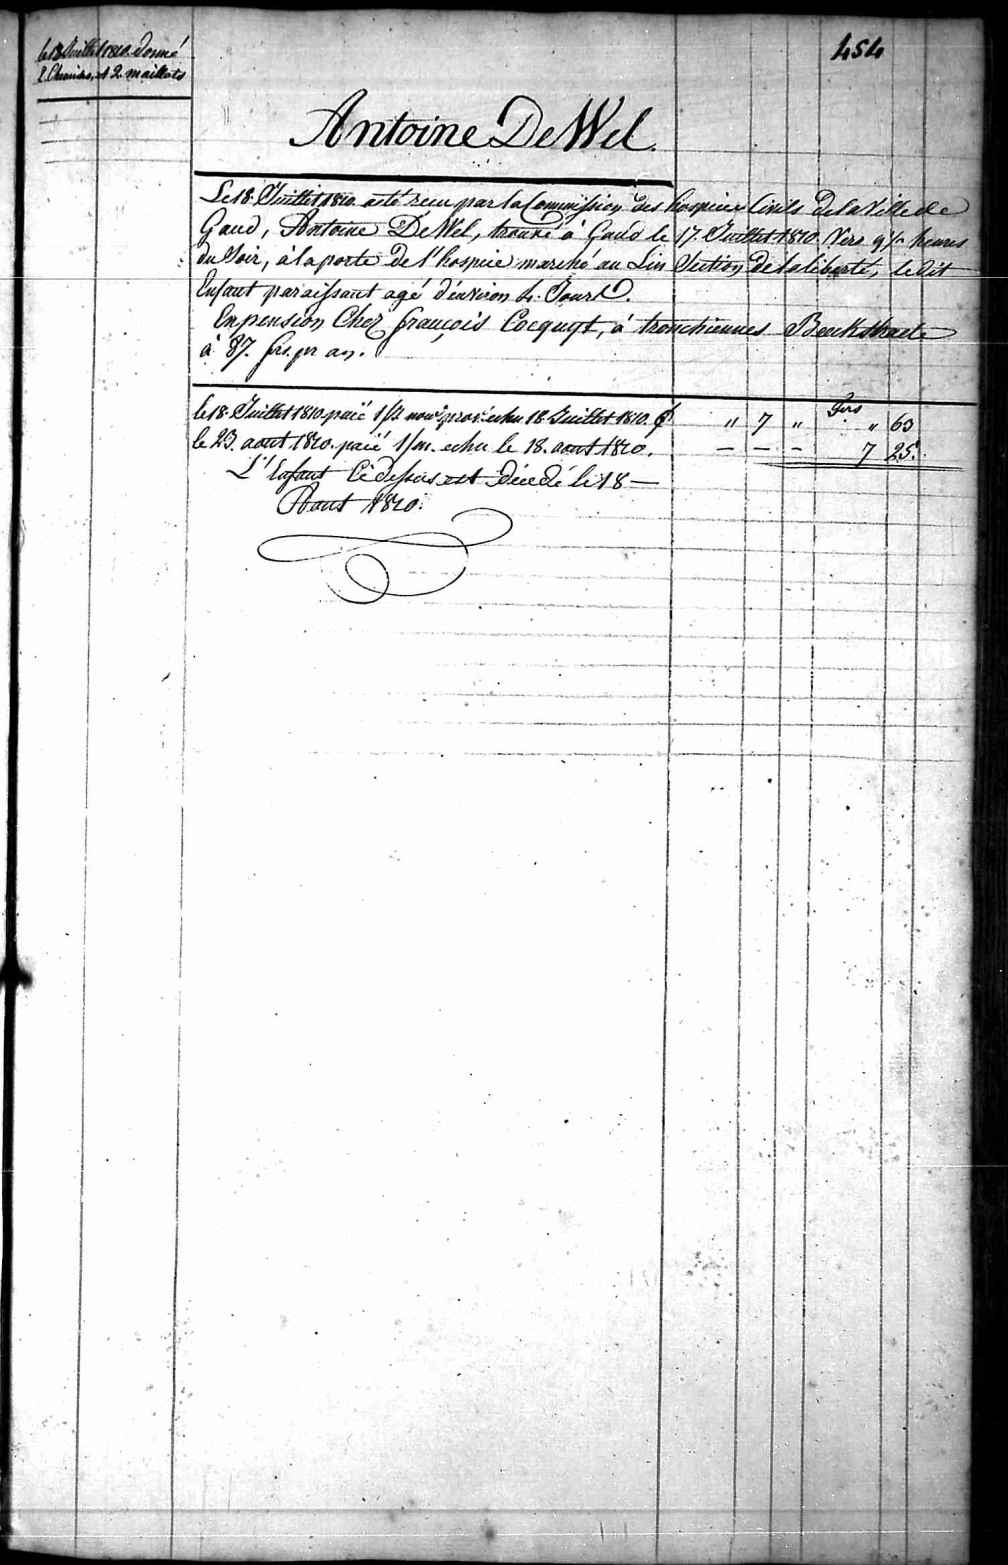 454
le 18 Juillet 1810. donné
2 Chemises, et 2 maillots
Antoine De Wel
Le 18 Juillet 1810 a été recu par la Commission des hospices Civils de la Ville de
Gand, Antoine De Wel, trouvé à Gand le 17 Juillet 1810 Vers 9 ½ heures
du Soir, à la porte de l'hospice marché au Lin Section de la liberté, le dit
Enfant paraissant agé d'environ 4. Jours.
En pension Chez françois Cocquyt, à tronchiennes Beekstraete
à 87. frs. pr an.
frs
le 18 Juillet 1810 paié 1/2 echu 18 Juillet 1810. " 7 " " 63
le 23. aout 1810. paié 1/m. echu le 18. aout 1810. – – – 7 25.
L'Enfant Cidessus est Décedé le 18 —
Aout 1810.